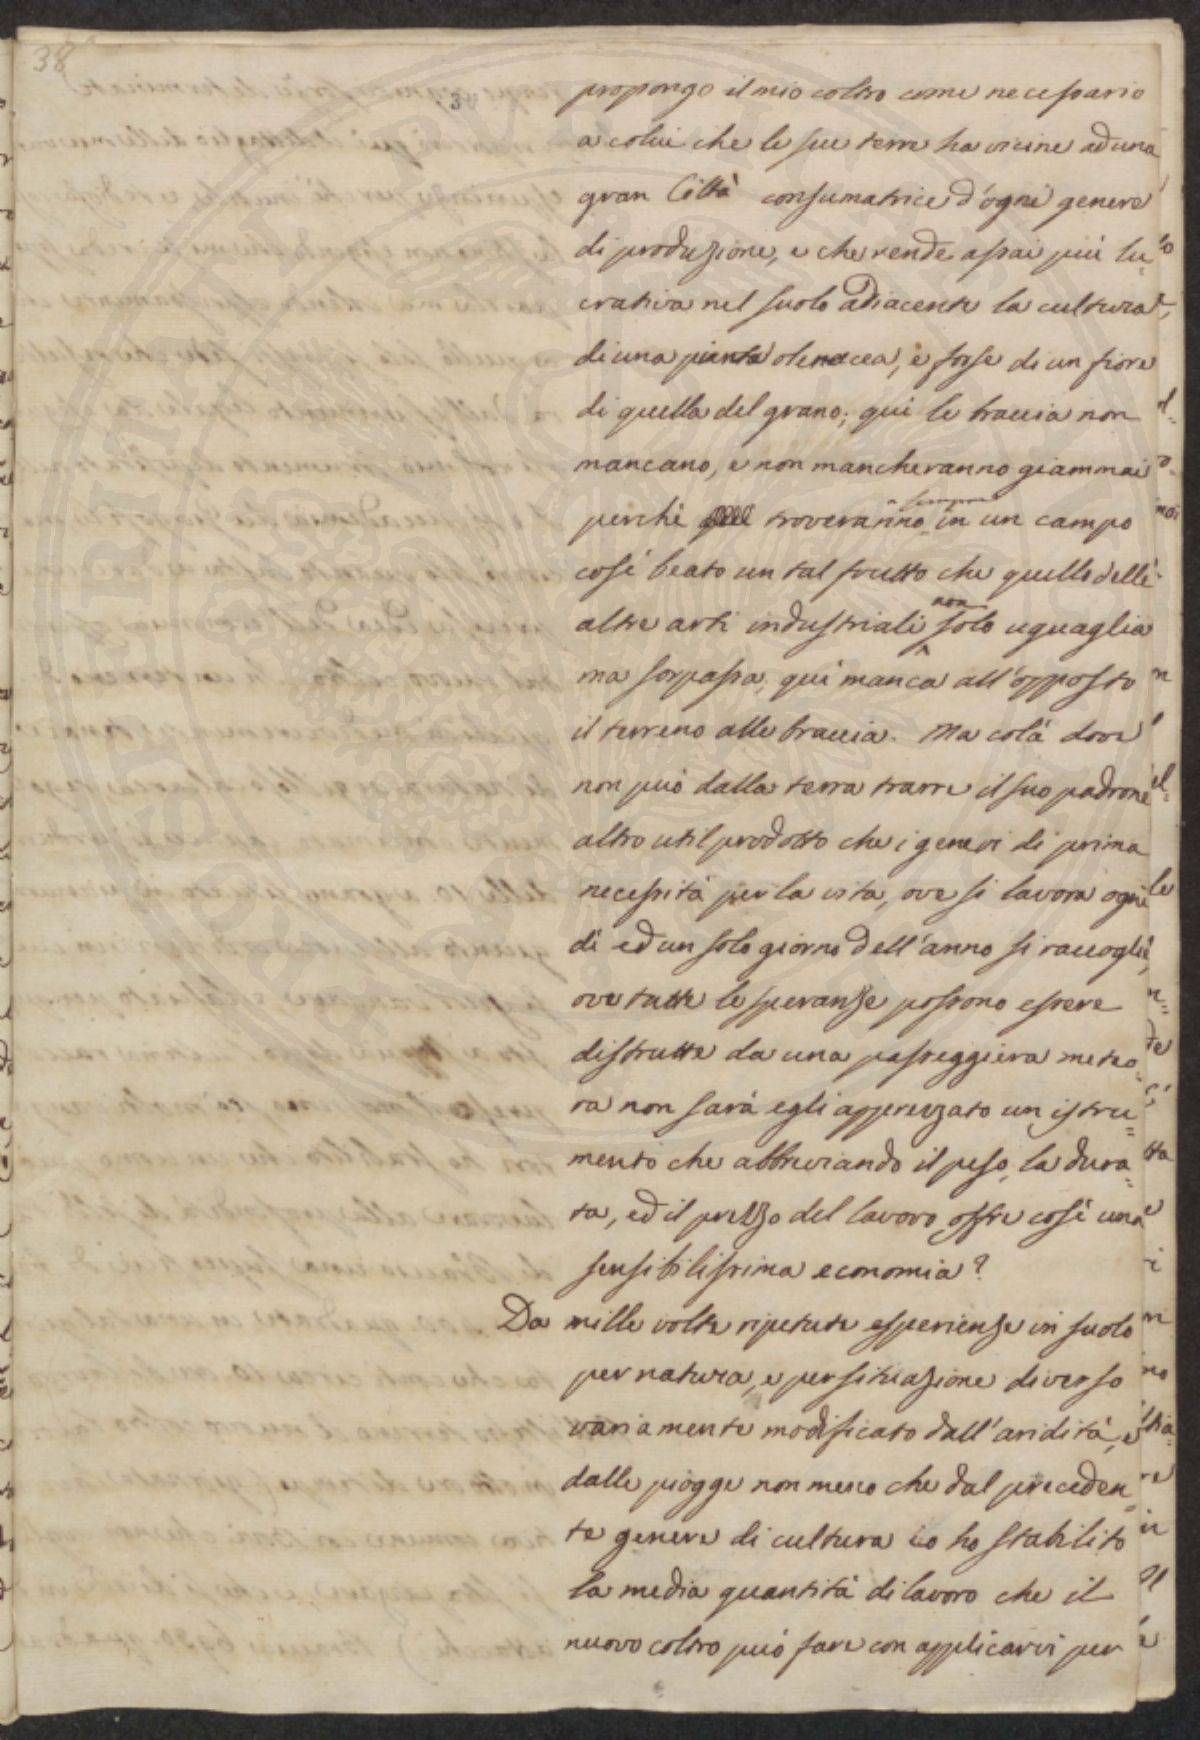 38
38
propongo il mio coltro come necessario
a colui che le sue terre ha vicine ad una
gran Città consumatrice d'ogni genere
di produzione, e che rende assai più lu=
crativa nel suolo adiacente la cultura
di una pianta olenacea, e forse di un fiore
di quella del grano; qui le braccia non
mancano, e non mancheranno giammai
sempre
perchè troveranno in un campo
così beato un tal frutto che quello delle
non
altre arti industriali solo uguaglia
ma sorpassa; qui manca all'opposto
il terreno alle braccia. Ma colà dove
non può dalla terra trarre il suo padrone
altro util prodotto che i generi di prima
necessità per la vita, ove si lavora ogni
dì ed un solo giorno dell'anno si raccoglie,
ove tutte le speranze possono essere
distrutte da una passeggiera meteo=
ra non sarà egli apprezzato un istru=
mento che abbreviando il peso, la dura=
ta, ed il prezzo del lavoro offre così una
sensibilissima economia?
Da mille volte ripetute esperienze in suolo
per natura, e per situazione diverso
variamente modificato dall'aridità, e
dalle piogge non meno che dal preceden=
te genere di cultura io ho stabilito
la media quantità di lavoro che il
nuovo coltro può fare con applicarvi per